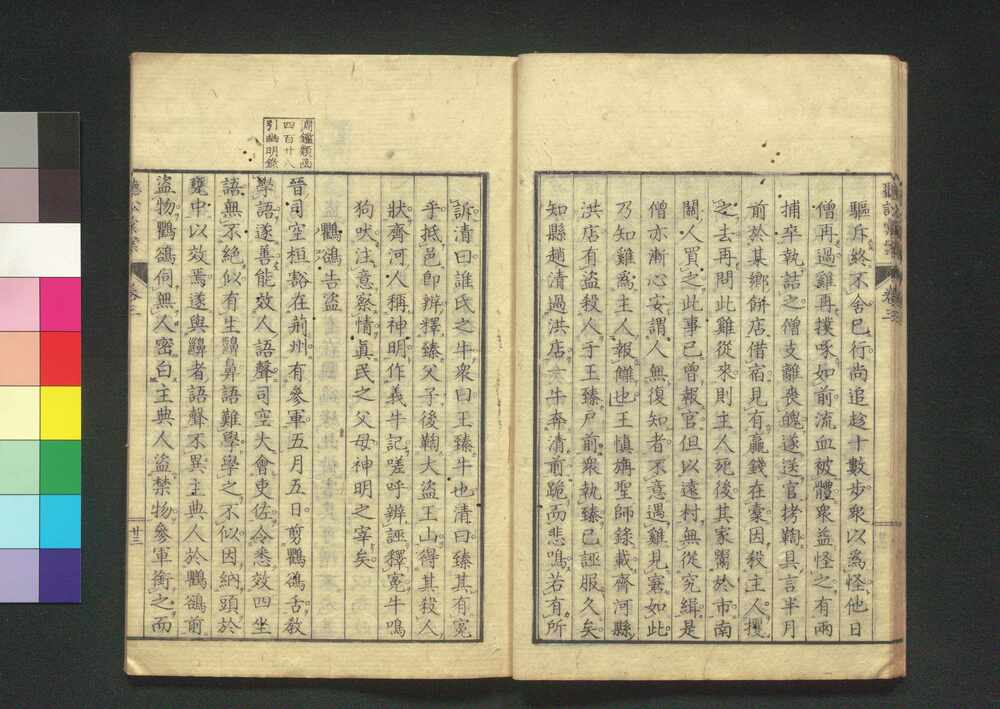 驅斥終不舍已行尚追趁十數步衆以爲怪他日
僧再過雞再撲啄如前流血被體衆益怪之有兩
捕卒執詰之僧支離喪魄遂送官拷鞫具言半月
前於某鄉餅店借宿見有羸錢在橐因殺主人攫
之去再問此雞從來則主人死後其家鬻於市南
關人買之此事已曾報官但以遠村無從究緝是
僧亦漸心安謂人無復知者不意遇雞見窘如此
乃知雞爲主人報讎也王愼旃聖師錄載齊河縣
洪店有盜殺人于王臻戶前衆執臻已誣服久矣
知縣趙清過洪店 牛奔清前跪而悲鳴若有所
訴清曰誰氏之牛衆曰王臻牛也清曰臻其有冤
乎抵邑卽辨釋臻父子後鞫大盜王山得其殺人
狀齊河人稱神明作義牛記嗟呼辨誣釋冤牛鳴
狗吠注意察情眞民之父母神明之宰矣
鸜鵒告盜
淵鑑類函
四百廿八
引幽明錄
晉司空桓豁在荊州有參軍五月五日剪鸜鵒舌教
學語遂善能效人語聲司空大會吏佐令悉效四坐
語無不絕似有生齆鼻語難學學之不似因納頭於
甕中以效焉遂與齆者語聲不異主典人於鸜鵒前
盜物鸜鵒伺無人密白主典人盜禁物參軍銜之而
卷三
廿三